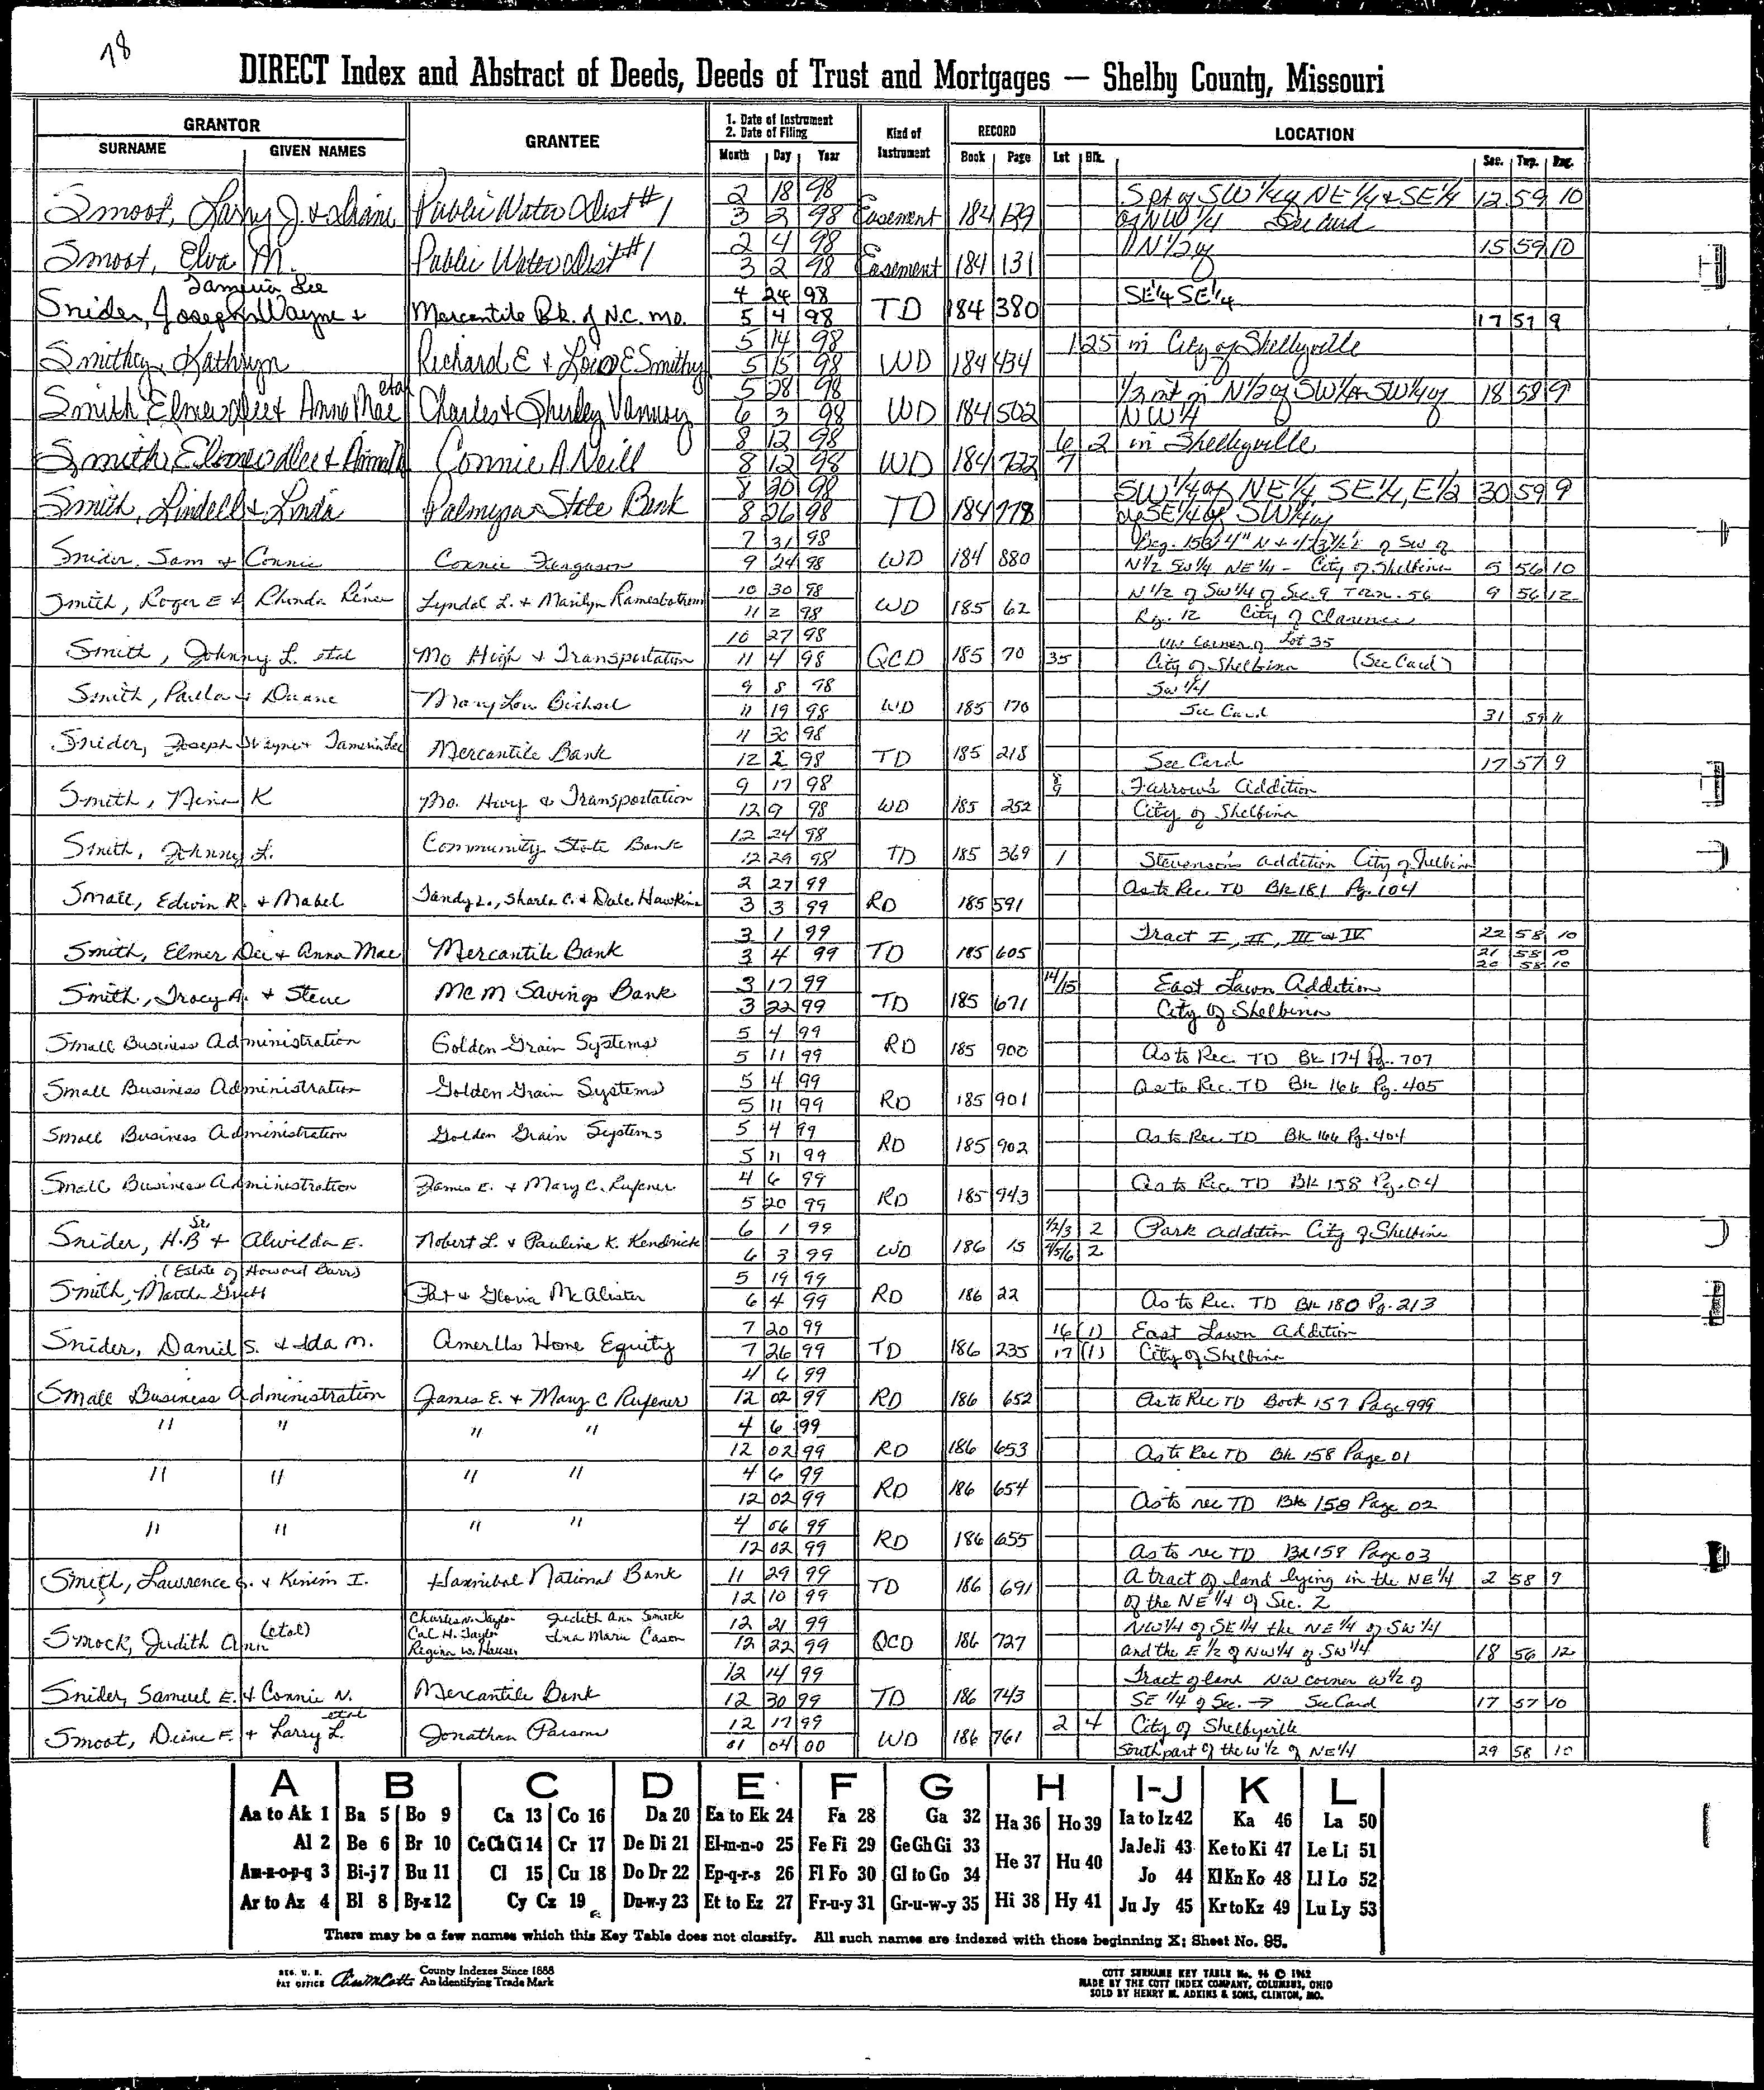 78
DIRECT Index and Abstract of Deeds, Deeds of Trust and Mortgages — Shelby County, Missouri
GRANTOR GRANTEE 1. Date of Instrument 2. Date of Filing Kind of Instrument RECORD LOCATION
SURNAME GIVEN NAMES Month Day Year Book Page Lot Blk. Sec. Twp. Rng.
Smoot, Larry J. & Diane Public Water Dist #1 2 18 98 S pt of SW 1/4 of NE 1/4 & SE 1/4 12 59 10
3 2 98 Easement 184 129 of NW 1/4 See Card
Smoot, Elva M. Public Water Dist #1 2 4 98 N 1/2 of 15 59 10
3 2 98 Easement 184 131
Tamera Lee 4 24 98 SE 1/4 SE 1/4
Snider, Joseph Wayne + Mercantile Bk. of N.C. Mo. 5 4 98 TD 184 380 17 57 9
Smithey, Kathryn Richard E + Lois E Smithy 5 14 98 1 25 in City of Shelbyville
5 15 98 WD 184 434
Smith Elmer Dee & Anna Mae etal Charles & Shirley 5 28 98 1/2 int in N 1/2 of SW 1/4 SW 1/4 of 18 58 9
6 3 98 WD 184 502 NW 1/4
Smith, Elmer Dee & Anna Connie A Neill 8 12 98 6 2 in Shelbyville
8 12 98 WD 184 722 7
Smith, Lindell & Linda Palmyra State Bank 8 20 98 SW 1/4 of NE 1/4, SE 1/4, E 1/2 30 59 9
8 26 98 TD 184 778 of SE 1/4 of SW 1/4 of
Snider, Sam & Connie Connie Ferguson 7 31 98 Beg. 153' 4" N of SW of
9 24 98 WD 184 880 N 1/2 SW 1/4 NE 1/4 - City of Shelbina 5 56 10
Smith, Roger E & Rhonda Renea Lyndal L. + Marilyn Ramesbothom 10 30 98 N 1/2 of SW 1/4 of Sec. 9 Twn. 56 9 56 12
11 2 98 WD 185 62 Rg. 12 City of Clarence
Smith, Johnny L. etal Mo High & Transportation 10 27 98 NW Corner of Lot 35
11 4 98 QCD 185 70 35 City of Shelbina (See Card)
Smith, Paula & Duane Mary Lou 9 8 98 SW 1/4
11 19 98 WD 185 170 See Card 31 59 11
Snider, Joseph Wayne + Tamera Lee Mercantile Bank 11 30 98
12 2 98 TD 185 218 See Card 17 57 9
Smith, Nina K Mo. Hwy & Transportation 9 17 98 8 9 Farrow's Addition
12 9 98 WD 185 252 City of Shelbina
Smith, Johnny L. Community State Bank 12 24 98
12 29 98 TD 185 369 1 Stevenson's Addition City of Shelbina
Small, Edwin R. + Mabel Tandy L., Sharla C. & Dale Hawkins 2 27 99 As to Rec. TD Bk 181 Pg. 104
3 3 99 RD 185 591
Smith, Elmer Dee + Anna Mae Mercantile Bank 3 1 99 Tract I, II, III & IV 22 58 10
3 4 99 TD 185 605 21 58 10
20 58 10
Smith, Tracy A. & Steve M C M Savings Bank 3 17 99 14/15 East Lawn Addition
3 22 99 TD 185 671 City of Shelbina
Small Business Administration Golden Grain Systems 5 4 99
5 11 99 RD 185 900 As to Rec. TD Bk 174 Pg. 707
Small Business Administration Golden Grain Systems 5 4 99 As to Rec. TD Bk 166 Pg. 405
5 11 99 RD 185 901
Small Business Administration Golden Grain Systems 5 4 99 As to Rec. TD Bk 166 Pg. 404
5 11 99 RD 185 902
Small Business Administration James E. + Mary C. Rufener 4 6 99 As to Rec. TD Bk 158 Pg. 04
5 20 99 RD 185 943
Snider, H.B Sr. + Alwilda E. Robert L. & Pauline K. Kendrick 6 1 99 1/2/3 2 Park Addition City of Shelbina
6 3 99 WD 186 15 4/5/6 2
(Estate of Howard Burr) 5 19 99
Smith, Martha Pat & Gloria McAlister 6 4 99 RD 186 22 As to Rec. TD Bk 180 Pg. 213
Snider, Daniel S. & Ida M. Amerlls Home Equity 7 20 99 16 (1) East Lawn Addition
7 26 99 TD 186 235 17 (1) City of Shelbina
Small Business Administration James E. + Mary C Rufener 4 6 99
12 02 99 RD 186 652 As to Rec TD Book 157 Page 999
" " " " 4 6 99
12 02 99 RD 186 653 As to Rec TD Bk 158 Page 01
" " " " 4 6 99
12 02 99 RD 186 654 As to rec TD Bk 158 Page 02
" " " " 4 06 99
12 02 99 RD 186 655 As to rec TD Bk 158 Page 03
Smith, Lawrence & Kimim I. Hannibal National Bank 11 29 99 A tract of land lying in the NE 1/4 2 58 9
12 10 99 TD 186 691 of the NE 1/4 of Sec. 2
Smock, Judith Ann (etal) Charles N. Taylor Judith Ann Smock 12 21 99 NW 1/4 of SE 1/4 the NE 1/4 of SW 1/4
Cal H. Taylor Ina Marie Cason
Regina W. Hauser 12 22 99 QCD 186 727 and the E 1/2 of NW 1/4 of SW 1/4 18 56 12
Snider, Samuel E. & Connie N. Mercantile Bank 12 14 99 Tract of land NW corner W 1/2 of
12 30 99 TD 186 743 SE 1/4 of Sec. → See Card 17 57 10
Smoot, Diane F. & Larry L. etal Jonathan Parsons 12 17 99 2 4 City of Shelbyville
01 04 00 WD 186 761 South part of the W 1/2 of NE 1/4 29 58 10
A B C D E F G H I-J K L
Aa to Ak 1 Ba 5 Bo 9 Ca 13 Co 16 Da 20 Ea to Ek 24 Fa 28 Ga 32 Ha 36 Ho 39 Ia to Iz 42 Ka 46 La 50
Al 2 Be 6 Br 10 Ce Ch Ci 14 Cr 17 De Di 21 El-m-n-o 25 Fe Fi 29 Ge Gh Gi 33 He 37 Hu 40 Ja Je Ji 43 Ke to Ki 47 Le Li 51
Am-n-o-p-q 3 Bi-j 7 Bu 11 Cl 15 Cu 18 Do Dr 22 Ep-q-r-s 26 Fl Fo 30 Gl to Go 34 Jo 44 Kl Kn Ko 48 Ll Lo 52
Ar to Az 4 Bl 8 By-z 12 Cy Cz 19 Du-w-y 23 Et to Ez 27 Fr-u-y 31 Gr-u-w-y 35 Hi 38 Hy 41 Ju Jy 45 Kr to Kz 49 Lu Ly 53
There may be a few names which this Key Table does not classify. All such names are indexed with those beginning X; Sheet No. 95.
REG. U. S. PAT OFFICE County Indexes Since 1888 An Identifying Trade Mark
COTT SURNAME KEY TABLE No. 96 © 1962
MADE BY THE COTT INDEX COMPANY, COLUMBUS, OHIO
SOLD BY HENRY M. ADKINS & SONS, CLINTON, MO.